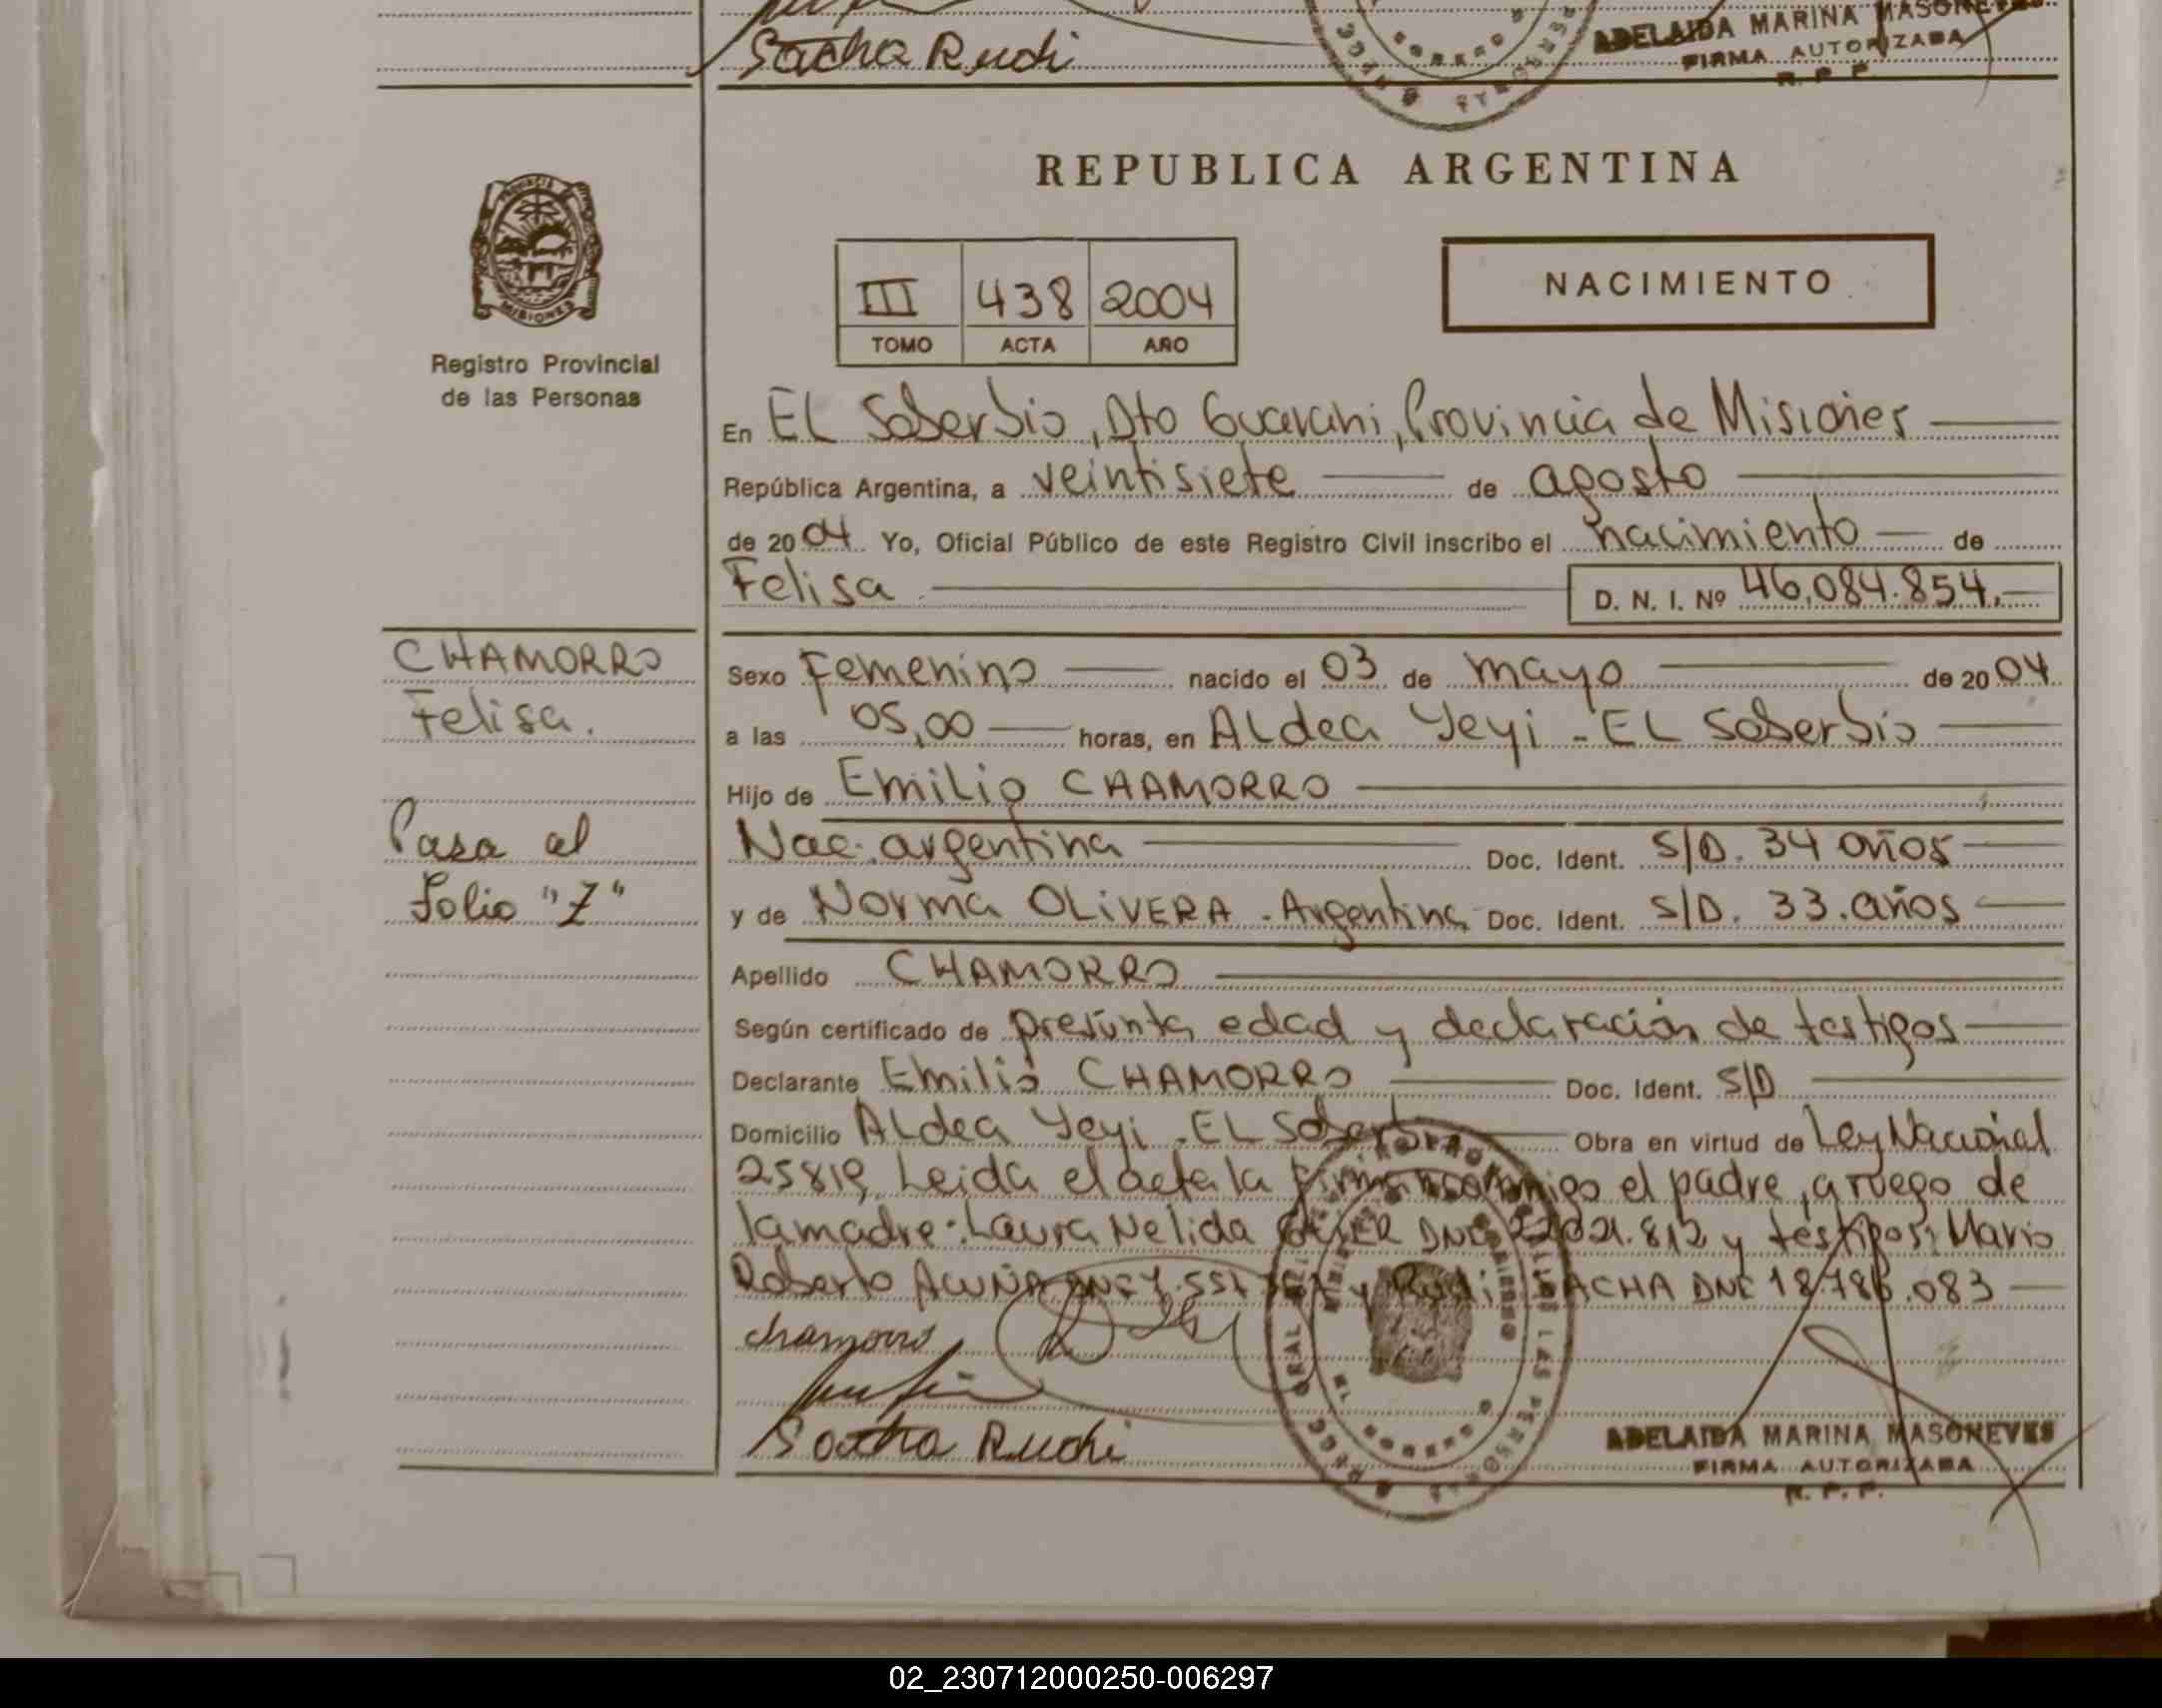 Sacha Rudi
ADELAIDA MARINA MASONEVES
FIRMA AUTORIZADA
R. P. P.
REPUBLICA ARGENTINA
PROVINCIA
MISIONES
III 438 2004
TOMO ACTA AÑO
NACIMIENTO
Registro Provincial
de las Personas
En EL Soberbio, Dto Guarani, Provincia de Misiones
República Argentina, a veintisiete de agosto
de 2004 Yo, Oficial Público de este Registro Civil inscribo el nacimiento de
Felisa D. N. I. Nº 46.084.854.
CHAMORRO
Felisa.
Pasa al
Folio "Z"
Sexo Femenino nacido el 03 de mayo de 2004
a las 05,00 horas, en ALdea Yeyi - EL Soberbio
Hijo de Emilio CHAMORRO
Nac. argentina Doc. Ident. S/D. 34 años
y de Norma OLIVERA - Argentina Doc. Ident. S/D. 33. años
Apellido CHAMORRO
Según certificado de presunta edad y declaración de testigos
Declarante Emilio CHAMORRO Doc. Ident. S/D
Domicilio ALdea Yeyi - EL Soberbio Obra en virtud de Ley Nacional
25819, Leida el acta la firman conmigo el padre, a ruego de
la madre: Laura Nelida DNI y testigos: Mario
Roberto ACUÑA y Rudi SACHA DNI 18.786.083
chamorro
Sacha Rudi
ADELAIDA MARINA MASONEVES
FIRMA AUTORIZADA
R. P. P.
02_230712000250-006297